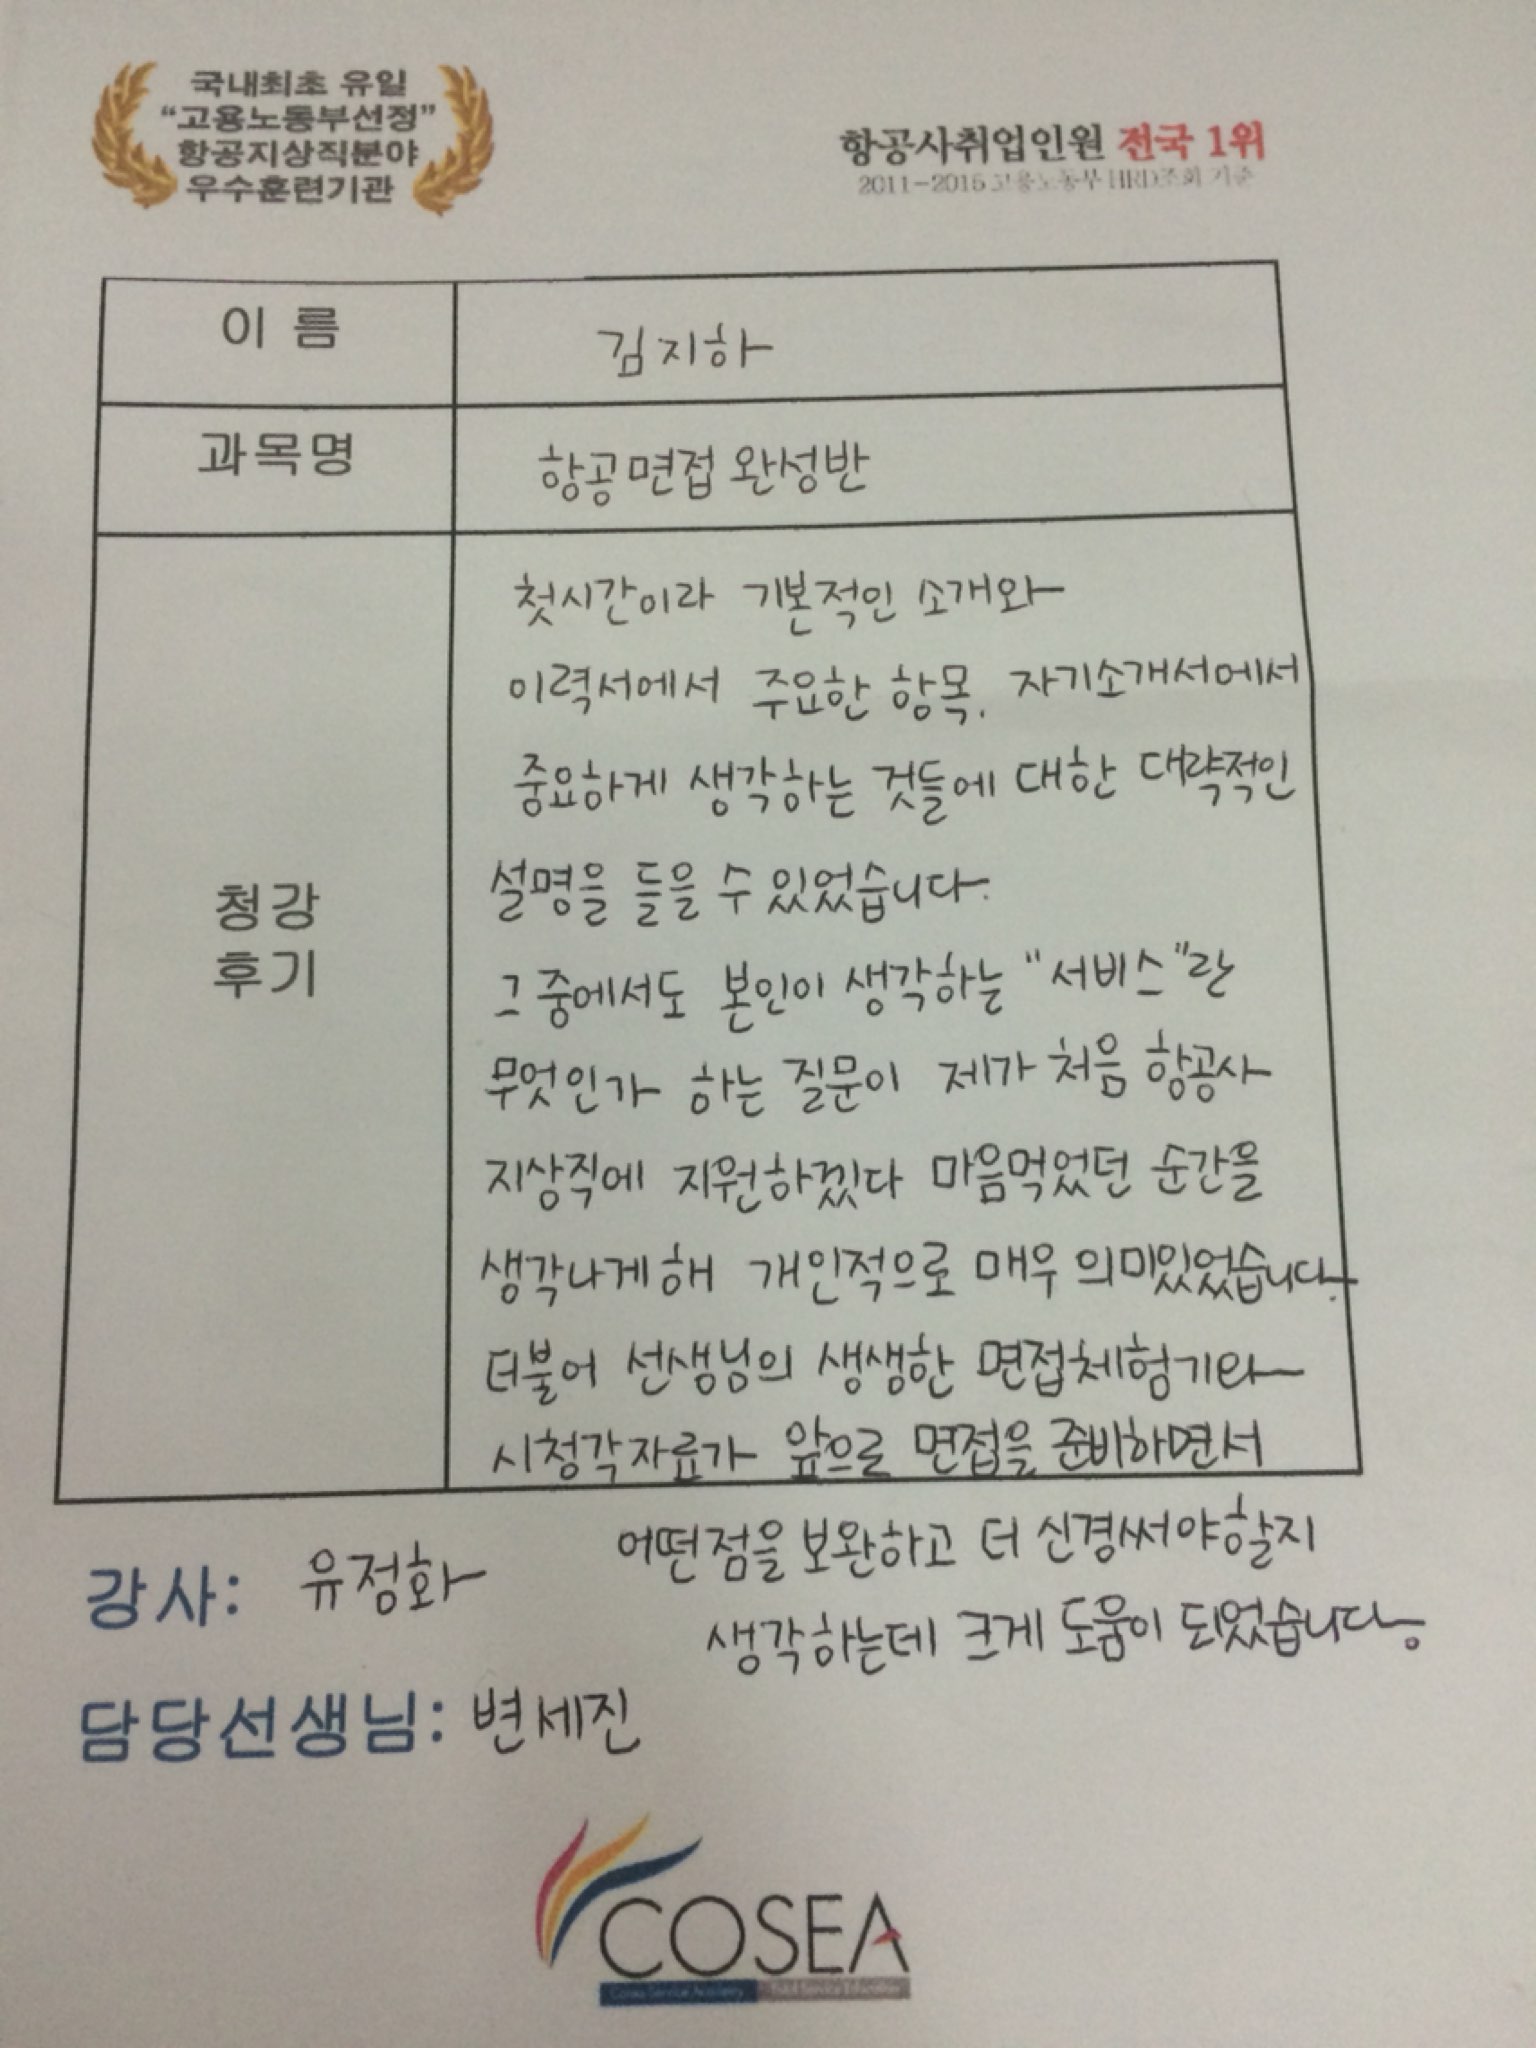 국내최초 유일
“고용노동부선정”
항공지상직분야
우수훈련기관
항공사취업인원 전국 1위
2011-2015 고용노동부 HRD조회 기준
이 름
김지하
과목명
항공면접 완성반
청강
후기
첫시간이라 기본적인 소개와
이력서에서 주요한 항목, 자기소개서에서
중요하게 생각하는 것들에 대한 대략적인
설명을 들을 수 있었습니다.
그 중에서도 본인이 생각하는 "서비스"란
무엇인가 하는 질문이 제가 처음 항공사
지상직에 지원하겠다 마음먹었던 순간을
생각나게 해 개인적으로 매우 의미있었습니다.
더불어 선생님의 생생한 면접체험기와
시청각자료가 앞으로 면접을 준비하면서
어떤점을 보완하고 더 신경써야할지
생각하는데 크게 도움이 되었습니다.
강사: 유정화
담당선생님: 변세진
COSEA
Cosea Service Academy Total Service Education